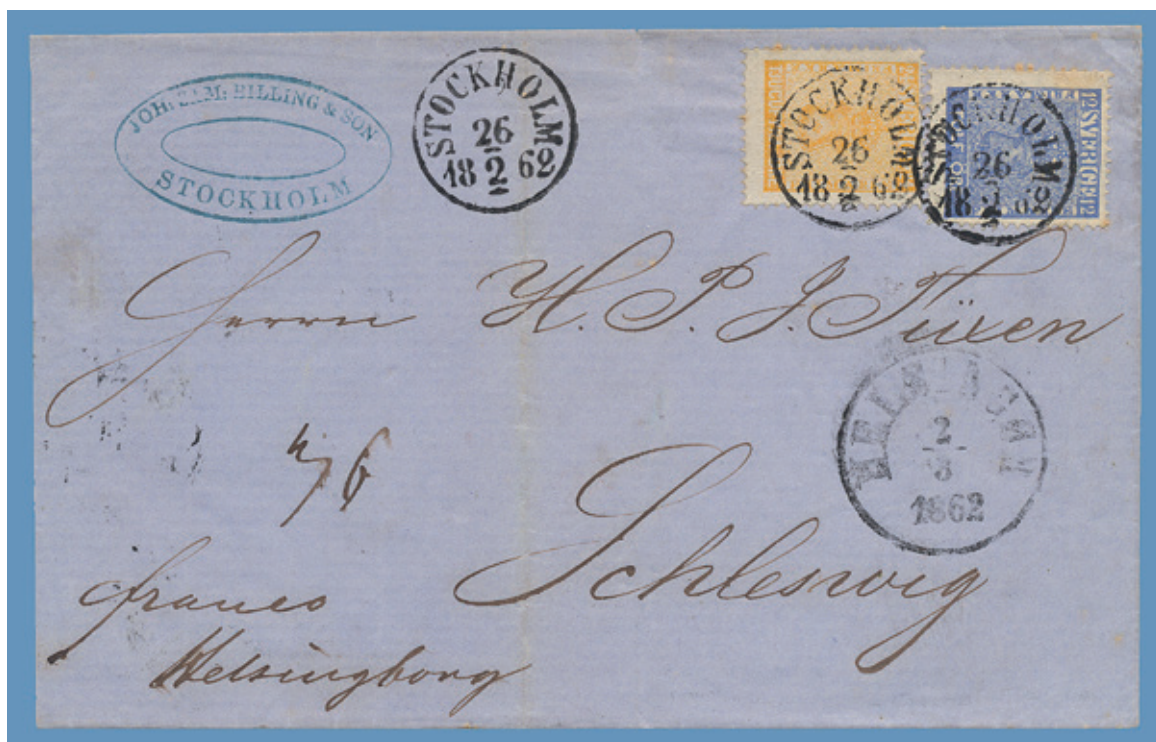 JOH: SAM: BILLING & SON
STOCKHOLM
STOCKHOLM
26
2
18 62
STOCKHOLM
26
2
18 62
STOCKHOLM
26
2
18 62
12 SVERIGE 12
Herrn H. P. J. Tüxen
2
3
1862
Schleswig
franco
Helsingborg